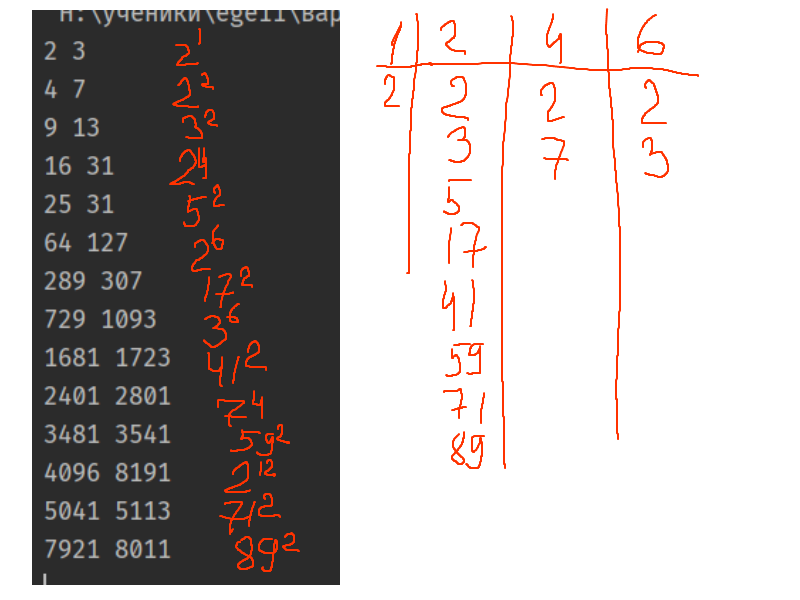 H:\ученики\ege11\вар
2 3 2^1
4 7 2^2
9 13 3^2
16 31 2^4
25 31 5^2
64 127 2^6
289 307 17^2
729 1093 3^6
1681 1723 41^2
2401 2801 7^4
3481 3541 59^2
4096 8191 2^12
5041 5113 71^2
7921 8011 89^2
1 2 4 6
2 2 2 2
3 7 3
5
17
41
59
71
89